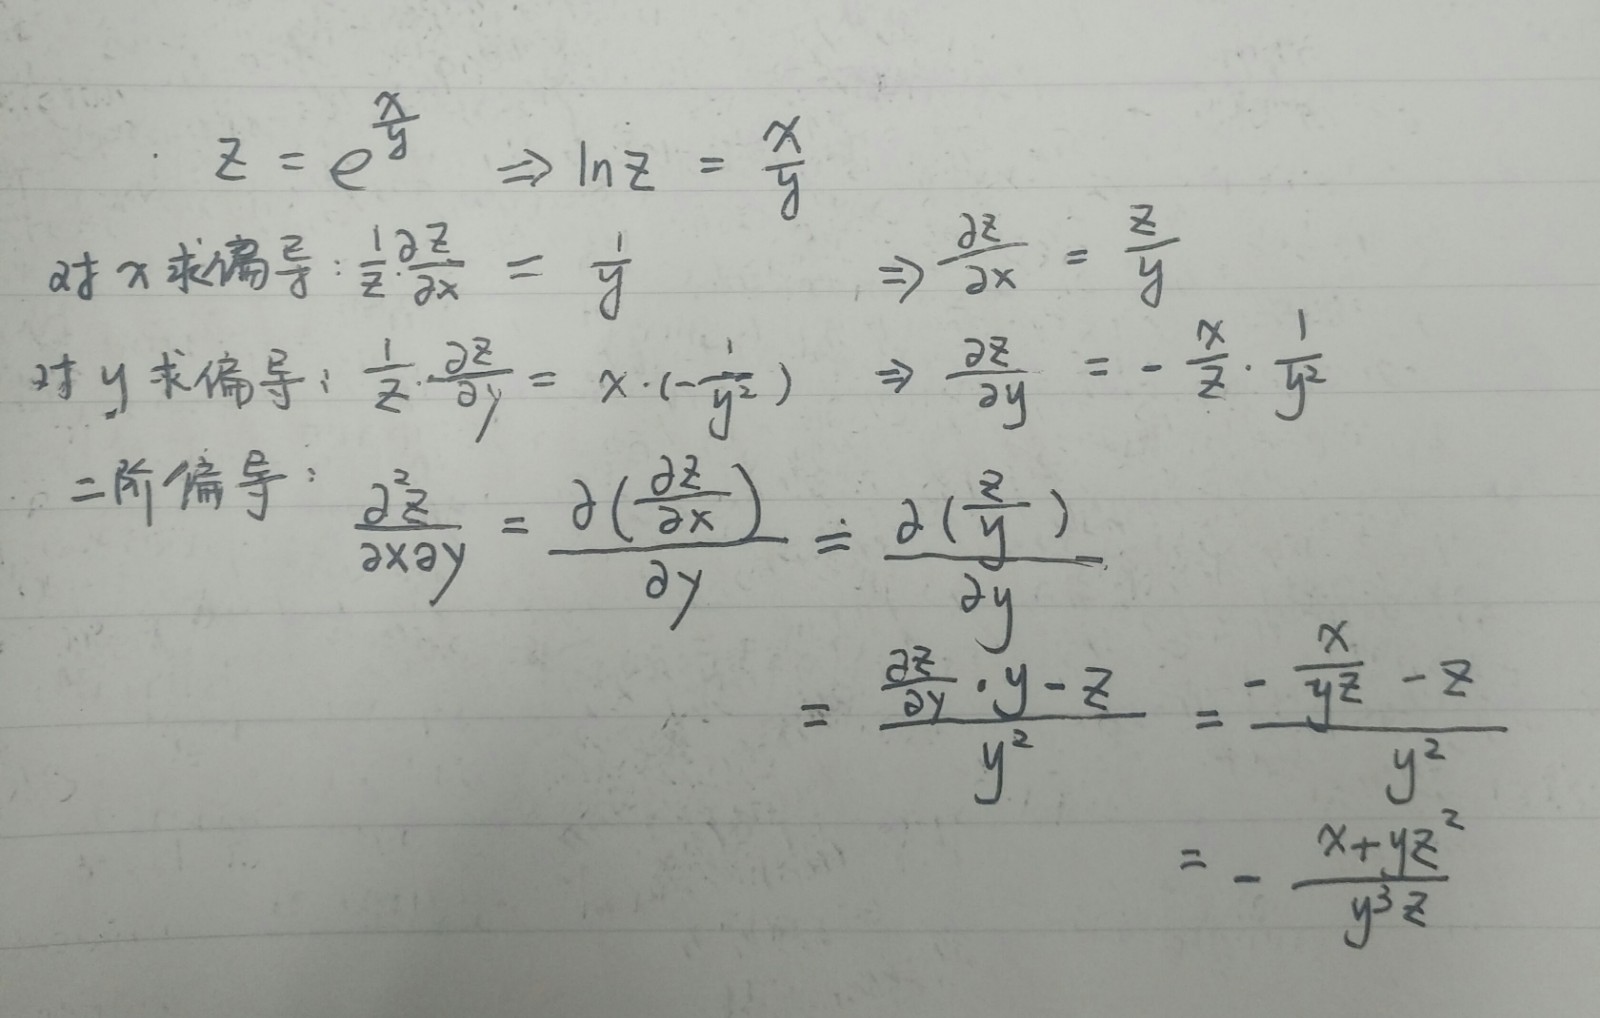 z = e^{\frac{x}{y}} ⇒ ln z = \frac{x}{y}
对 x 求偏导: \frac{1}{z}·\frac{∂z}{∂x} = \frac{1}{y} ⇒ \frac{∂z}{∂x} = \frac{z}{y}
对 y 求偏导: \frac{1}{z}·\frac{∂z}{∂y} = x·(-\frac{1}{y^2}) ⇒ \frac{∂z}{∂y} = -\frac{x}{z}·\frac{1}{y^2}
二阶偏导: \frac{∂^2z}{∂x∂y} = \frac{∂(\frac{∂z}{∂x})}{∂y} = \frac{∂(\frac{z}{y})}{∂y}
= \frac{\frac{∂z}{∂y}·y-z}{y^2} = \frac{-\frac{x}{yz}-z}{y^2}
= -\frac{x+yz^2}{y^3z}